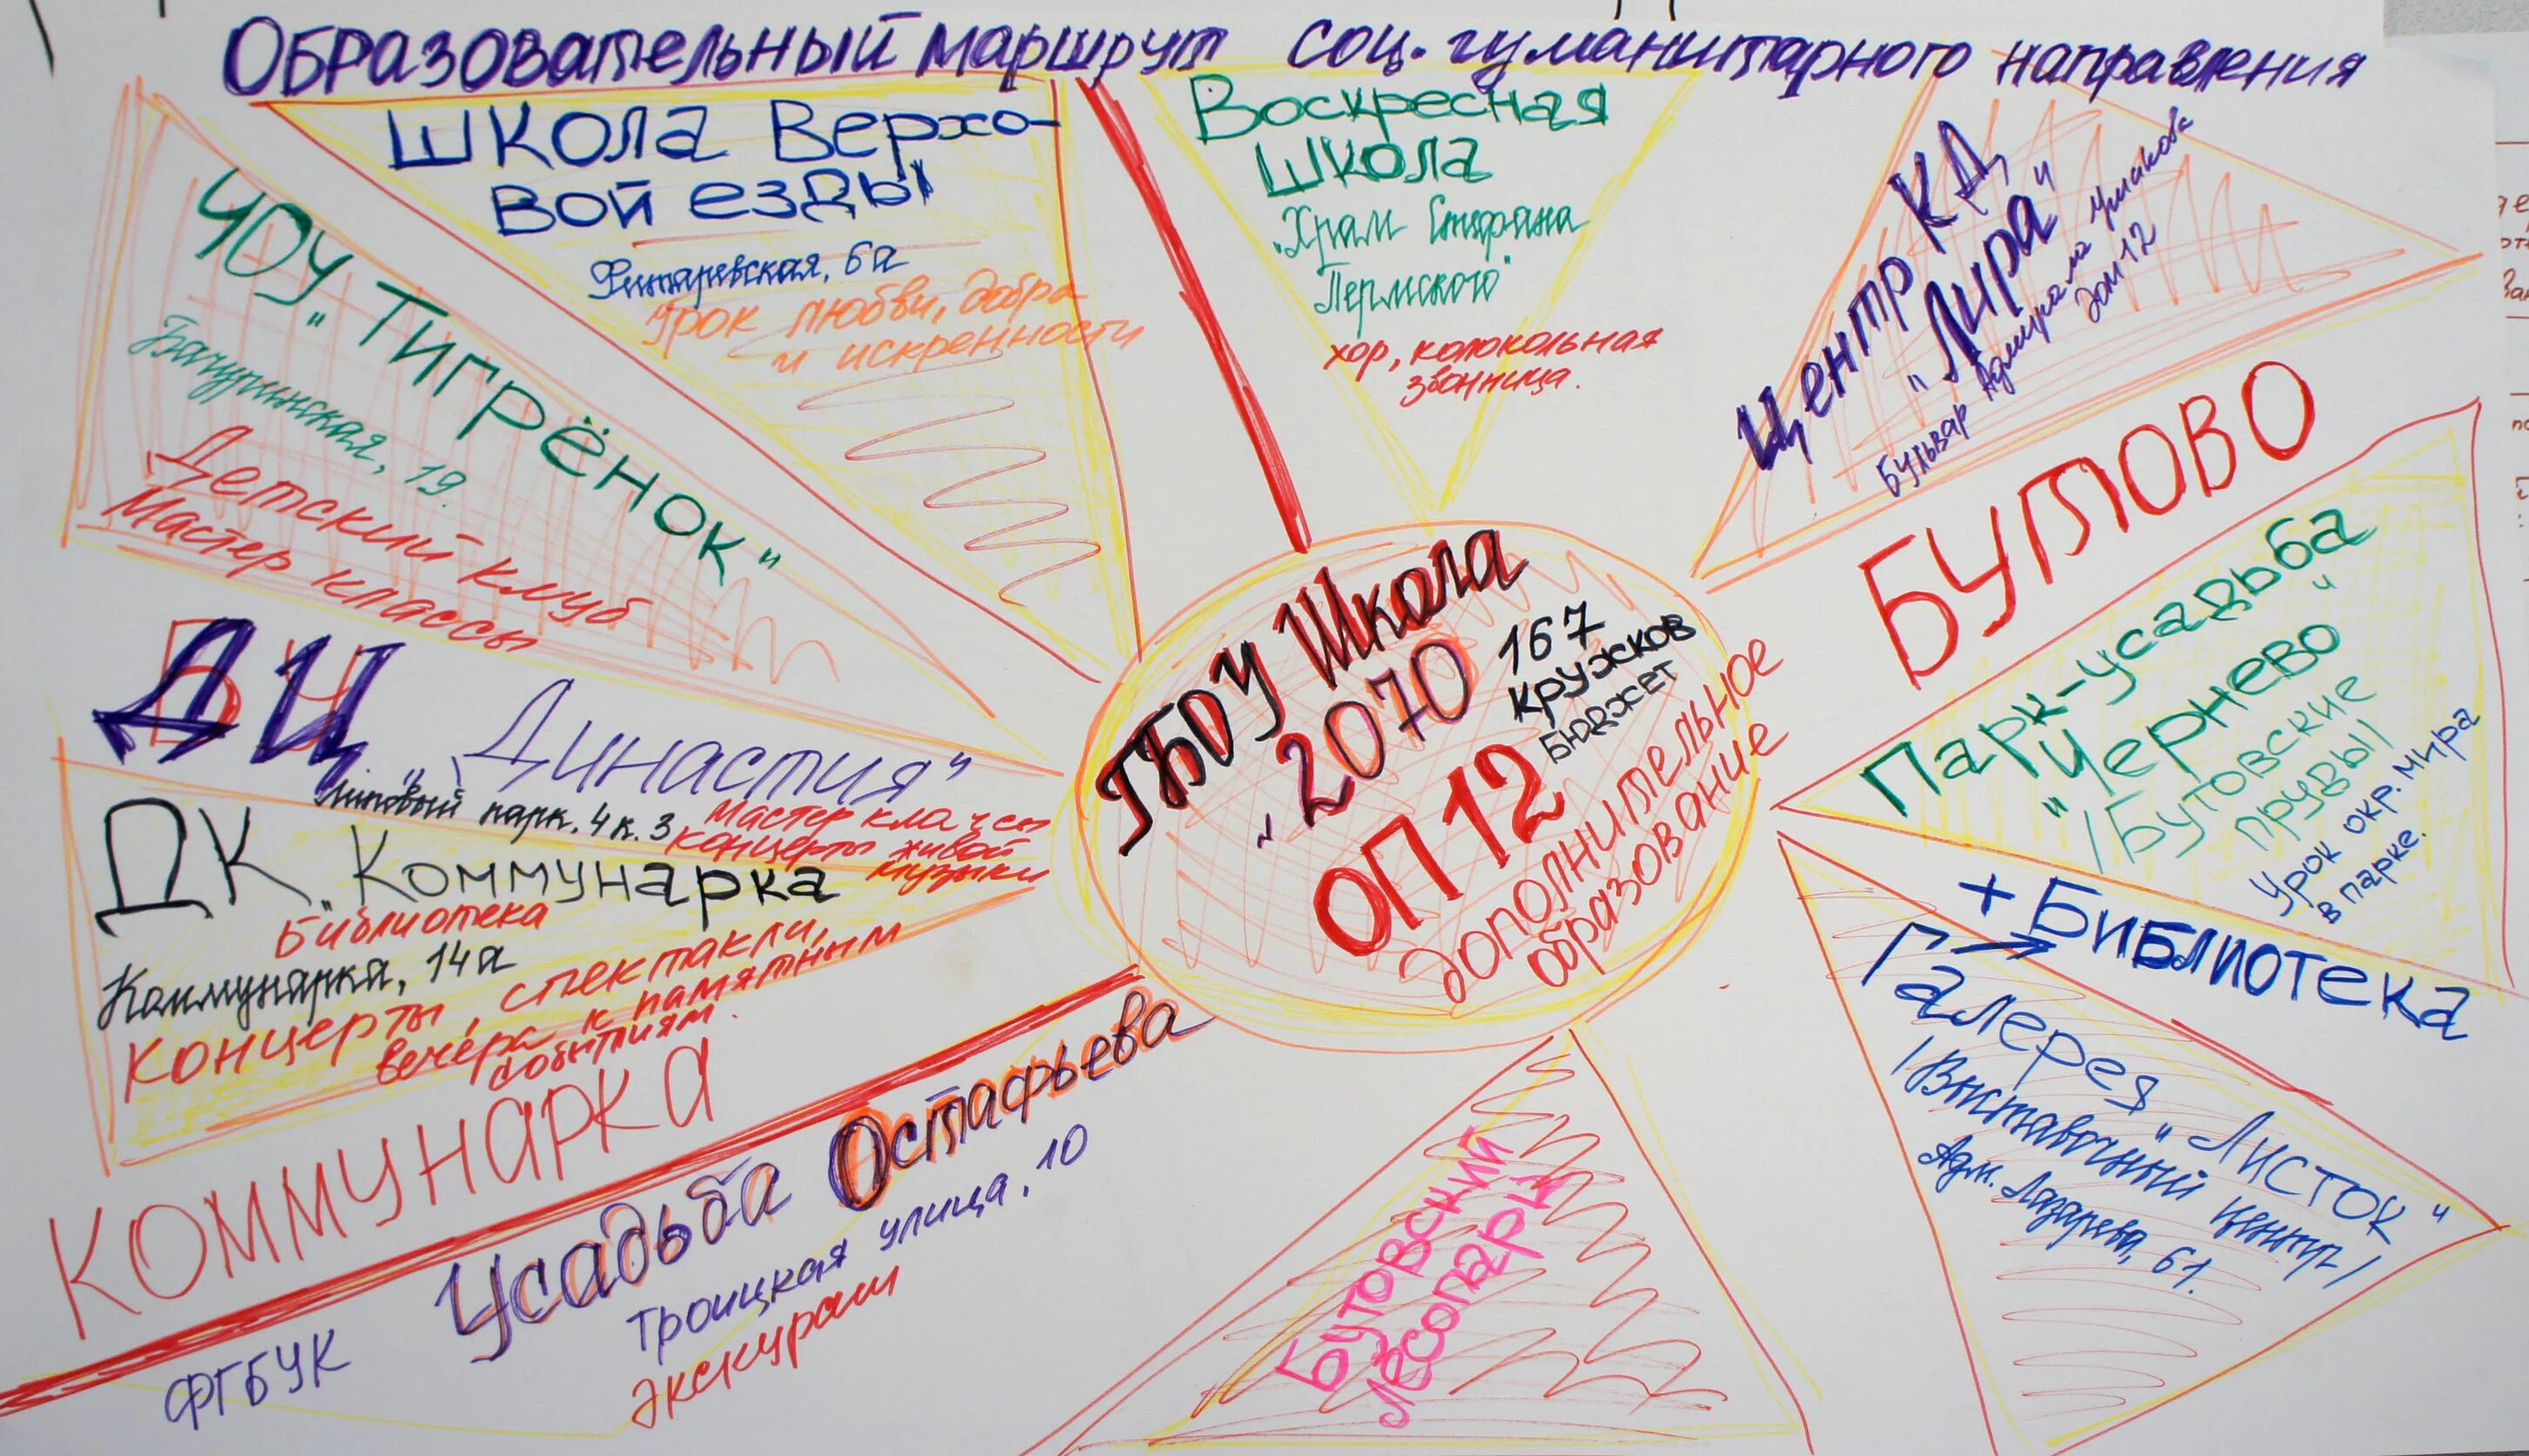 Образовательный маршрут соц. гуманитарного направления
Школа Верхо-
вой езды
Фитаревская, 6а
Урок любви, добра
и искренности
Воскресная
школа
"Храм Стефана
Пермского"
хор, колокольная
звонница.
Центр КД
"Лира"
Бульвар Адмирала Ушакова
дом 12
ЧОУ "Тигрёнок"
Бачуринская, 19
Детский клуб
Мастер классы
БУТОВО
ДЦ "Династия"
Липовый парк. 4 к. 3
Мастер классы
концерты живой
музыки
ГБОУ Школа
"2070
167
кружков
бюджет
ОП 12
Дополнительное
образование
Парк-усадьба
"Чернево"
/Бутовские
пруды/
Урок окр. мира
в парке.
+ Библиотека
ДК "Коммунарка
Библиотека
Коммунарка, 14а
Концерты, спектакли,
вечера к памятным
событиям.
КОММУНАРКА
Галерея "Листок"
/Выставочный центр/
Адм. Лазарева, 61.
ФГБУК Усадьба Остафьева
Троицкая улица, 10
Экскурсии
Бутовский
лесопарк